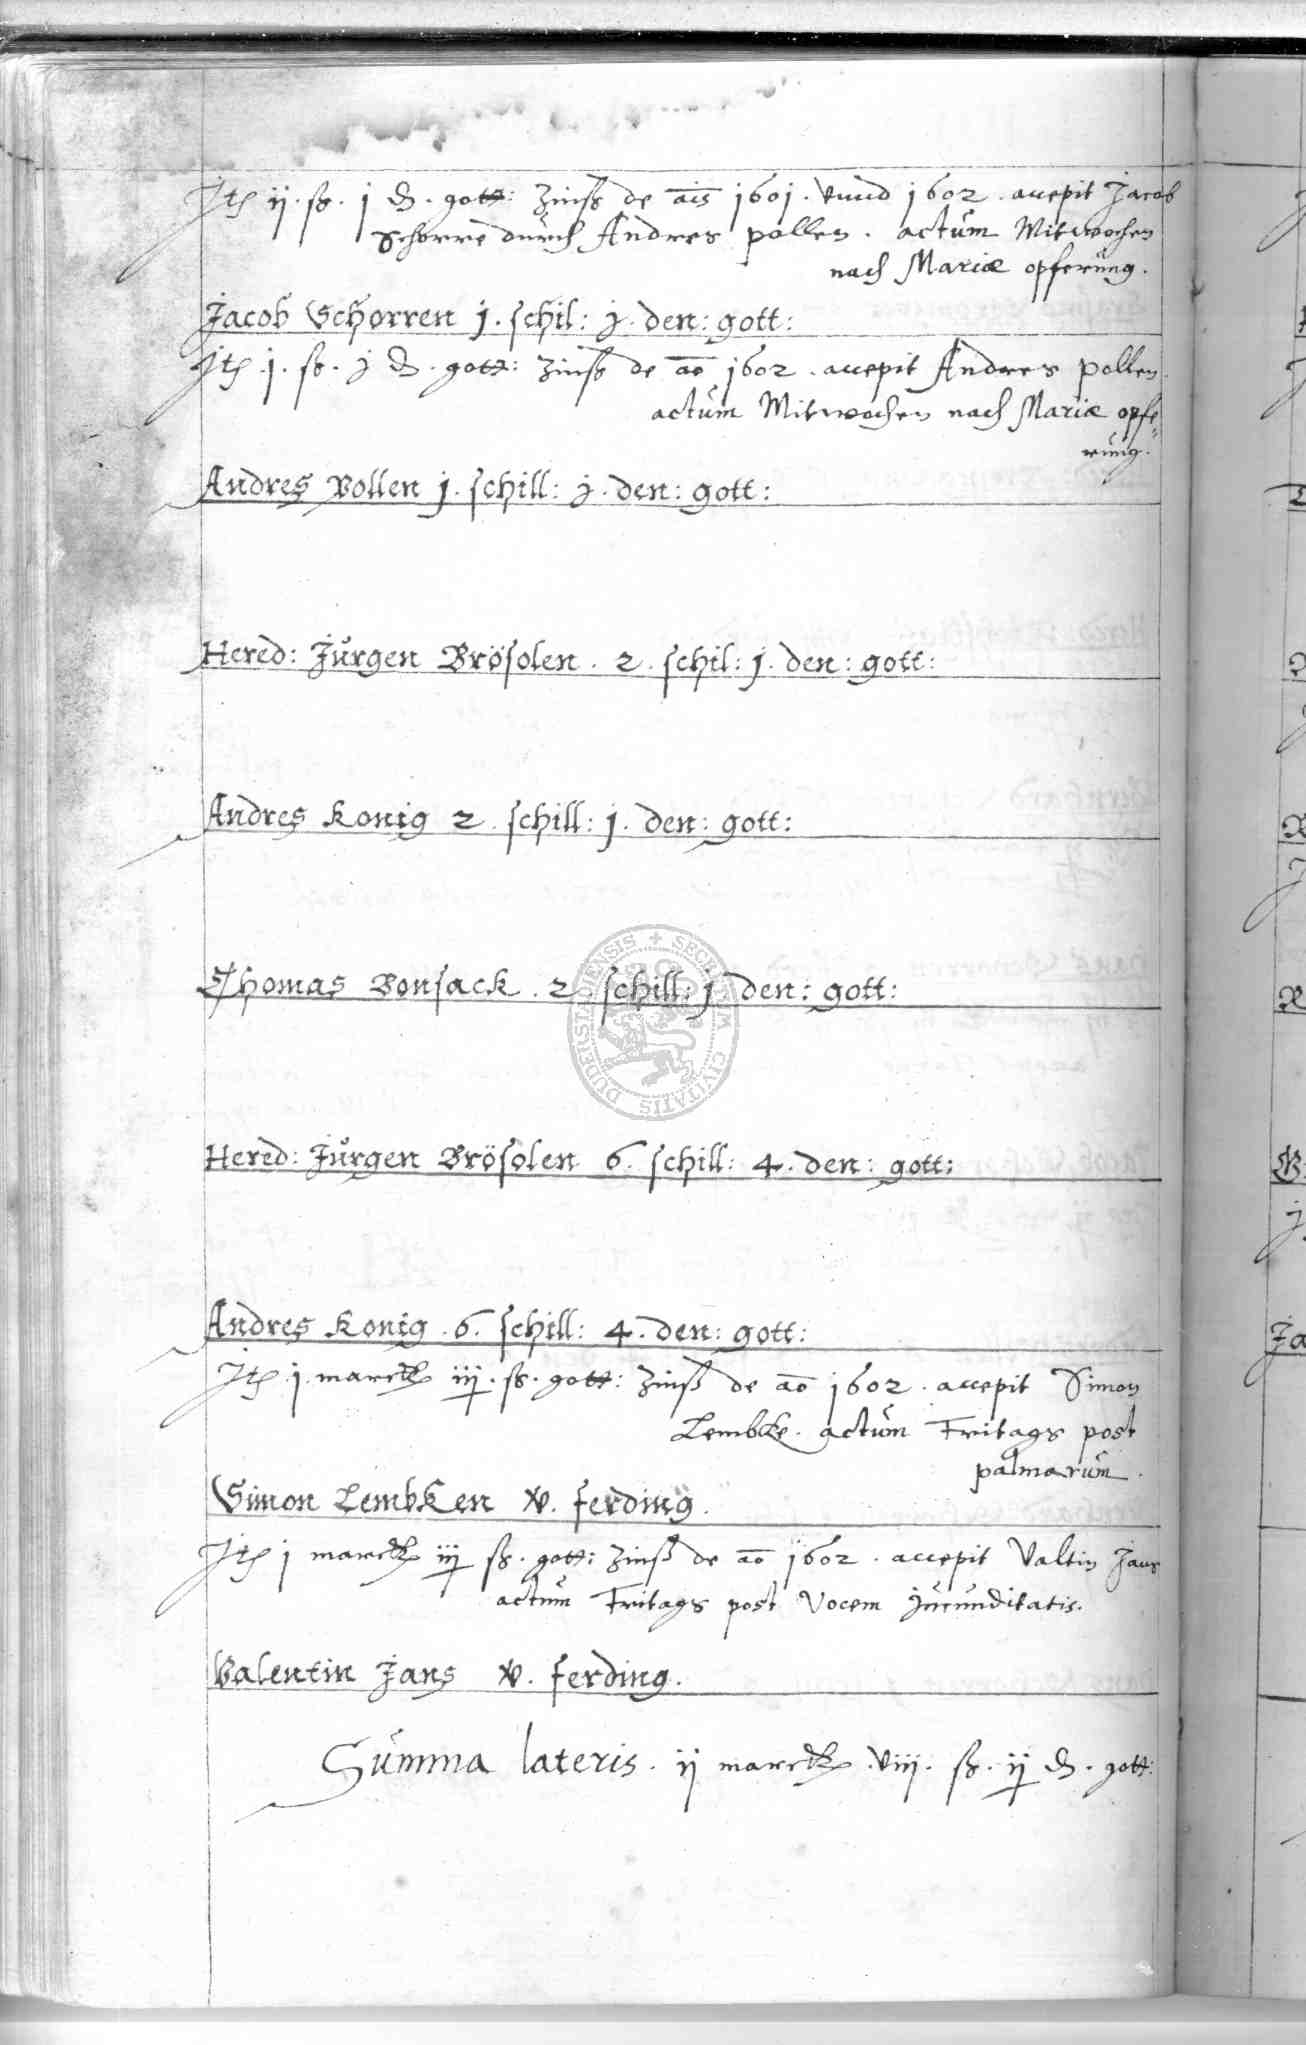 Jt ij. ß. j ₰. gott: Zinß de ais 1601. vnnd 1602. accepit Jacob
Schorre durch Andres pollen. actum Mitwochen
nach Mariæ opferung.
Jacob Schorren j. schil: j. den: gott:
Jt j. ß. j ₰. gott: Zinß de ao 1602. accepit Andres pollen
actum Mitwochen nach Mariæ opfe=
rung.
Andres Pollen j. schill: j. den: gott:
Hered: Jürgen Brösolen. 2. schil: j. den: gott:
Andres Konig 2. schill: j. den: gott:
Thomas Bonsack. 2. schill: j den: gott:
SECRETUM CIVITATIS DUDERSTADENSIS
Hered: Jürgen Brösolen 6. schill: 4. den: gott:
Andres Konig. 6. schill: 4. den: gott:
Jt j. marck iij. ß. gott: Zinß de ao 1602. accepit Simon
Lembcke. actum Fritags post
palmarum.
Simon Lembken v. ferding.
Jt j marck iij ß. gott: Zinß de ao 1602. accepit Valtin Jans
actum Fritags post Vocem jucunditatis.
Valentin Jans v. ferding.
Summa lateris. ij marck. viij. ß. ij ₰. gott: